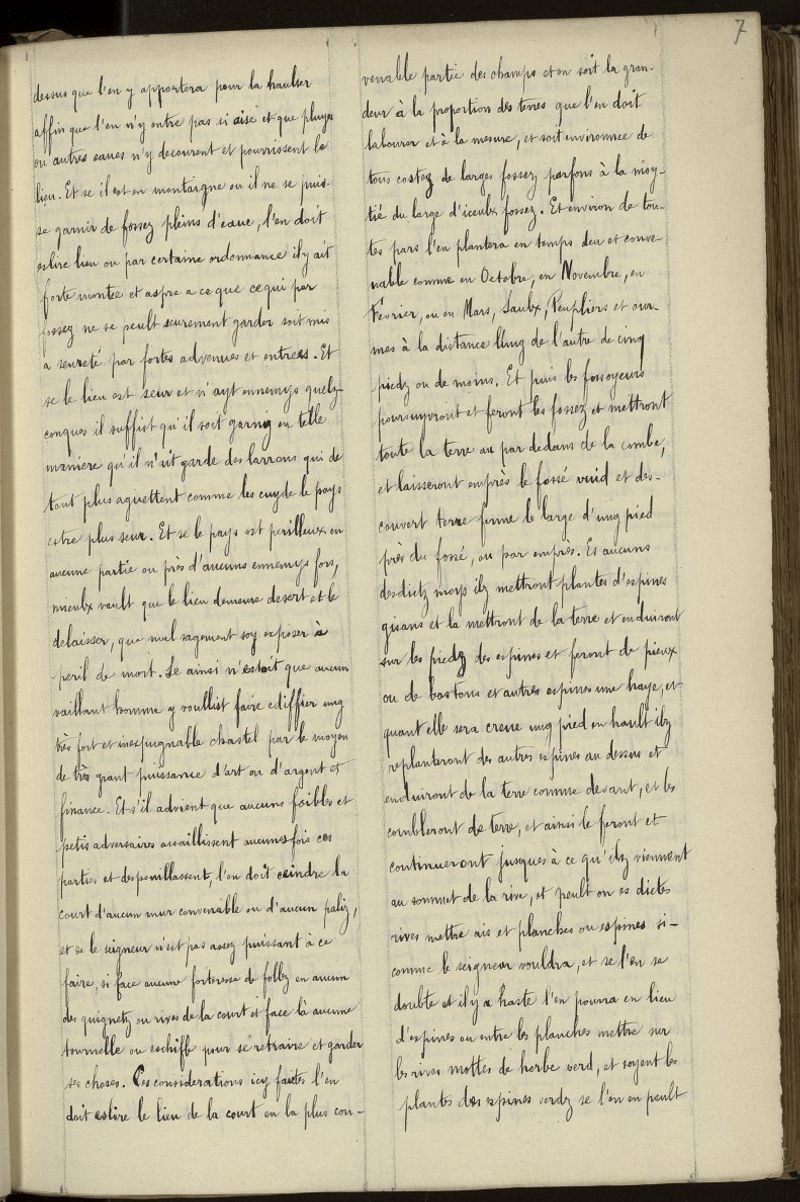 7
dessus que l'en y apportera pour la haulser
affin que l'en n'y entre pas si aisé et que pluyes
ou autres eaues n'y decourent et pourrissent le
lieu. Et se il est en montaigne ou il ne se puis-
se garnir de fossez pleins d'eaue, l'en doit
eslire lieu ou par certaine ordonnance il y ait
forte montee et aspre a ce que ce qui par
fossez ne se peult seurement garder soit mis
a seureté par fortes advenues et entrees. Et
se le lieu est seur et n'ayt ennemys quelz-
conques il suffist qu'il soit garny en telle
maniere qu'il n'ait garde des larrons qui de
tant plus aguettent comme les cuyde le pays
estre plus seur. Et se le pays est perilleux en
aucune partie ou près d'aucuns ennemys fors,
mieulx vault que le lieu demeure desert et le
delaisser, que mal sagement soy exposer à
peril de mort. Se ainsi n'estoit que aucun
vaillant homme y voullist faire ediffier ung
très fort et inexpugnable chastel par le moyen
de très grant puissance d'art ou d'argent et
finance. Et s'il advient que aucuns foibles et
petis adversaires assaillissent aucunes fois ces
parties et despouillassent, l'en doit ceindre la
court d'aucun mur convenable ou d'aucun paliz,
et se le seigneur n'est pas assez puissant à ce
faire, si face aucune forteresse de follez en aucun
des quignetz ou rives de la court et face là aucune
tournelle ou eschiffe pour se retraire et garder
ses choses. Ces considerations icy faictes l'en
doit eslire le lieu de la court en la plus con-
venable partie des champs et en soit la gran-
deur à la proportion des terres que l'en doit
labourer et à la mesure, et soit environnee de
tous costez de larges fossez parfons à la moy-
tié du large d'iceulx fossez. Et environ de tou-
tes pars l'en plantera en temps deu et conve-
nable comme en Octobre, en Novembre, en
Fevrier, ou en Mars, Saulx, Peupliers et our-
mes à la distance l'ung de l'autre de cinq
piedz ou de moins. Et puis les fossoyeurs
poursuyvront et feront les fossez et mettront
toute la terre au par dedans de la combe,
et laisseront emprès le fossé vuid et des-
couvert terre ferme le large d'ung pied
près du fossé, ou par emprès. Es aucuns
desdictz moys ilz mettront plantes d'espines
gisans et la mettront de la terre et enduiront
sur les piedz des espines et feront de pieux
ou de bastons et autres espines une haye, et
quant elle sera creue ung pied en hault ilz
replanteront des autres espines au dessus et
enduiront de la terre comme devant, et les
combleront de terre, et ainsi le feront et
continueront jusques à ce qu'ilz viennent
au sommet de la rive, et peult on es dictes
rives mettre ais et planches ou espines si-
comme le seigneur vouldra, et se l'en se
doubte et il y a haste l'en pourra en lieu
d'espines ou entre les planches mettre sur
les rives mottes de herbe verd, et soyent les
plantes des espines verdz se l'en en peult